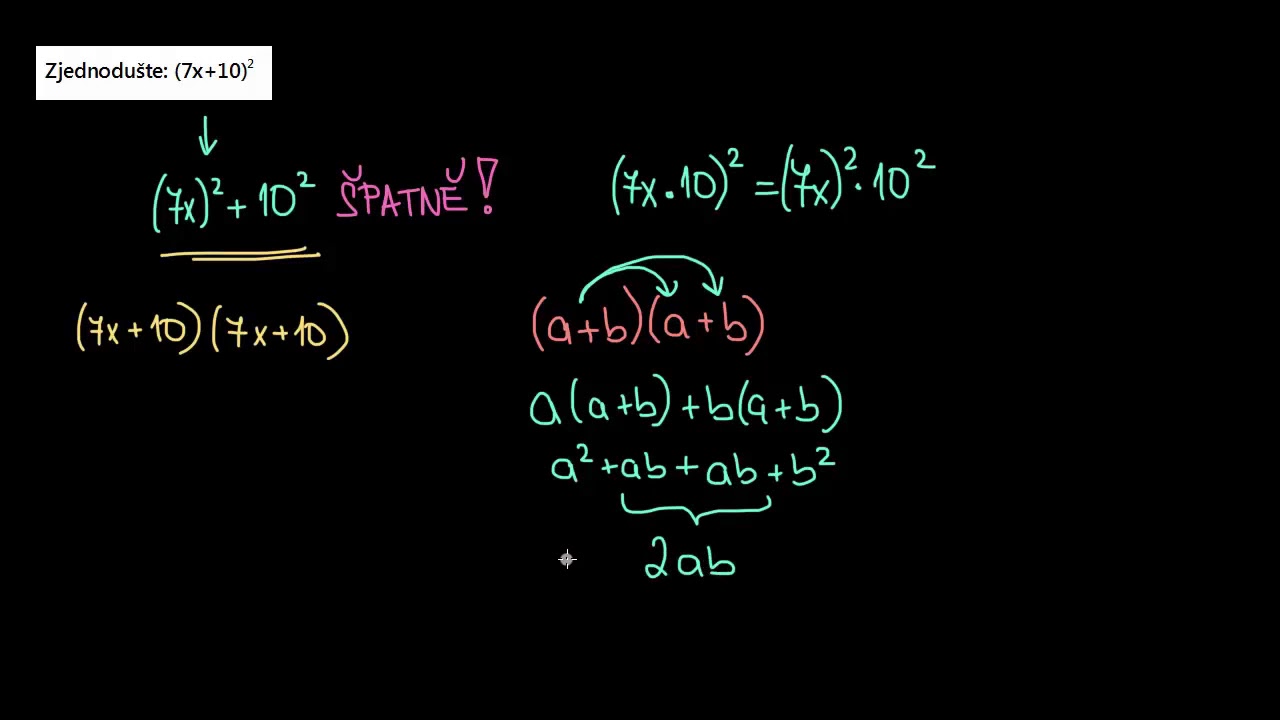 Zjednodušte: (7x+10)²
(7x)² + 10² ŠPATNĚ!
(7x · 10)² = (7x)² · 10²
(7x+10)(7x+10)
(a+b)(a+b)
a(a+b)+b(a+b)
a²+ab+ab+b²
2ab